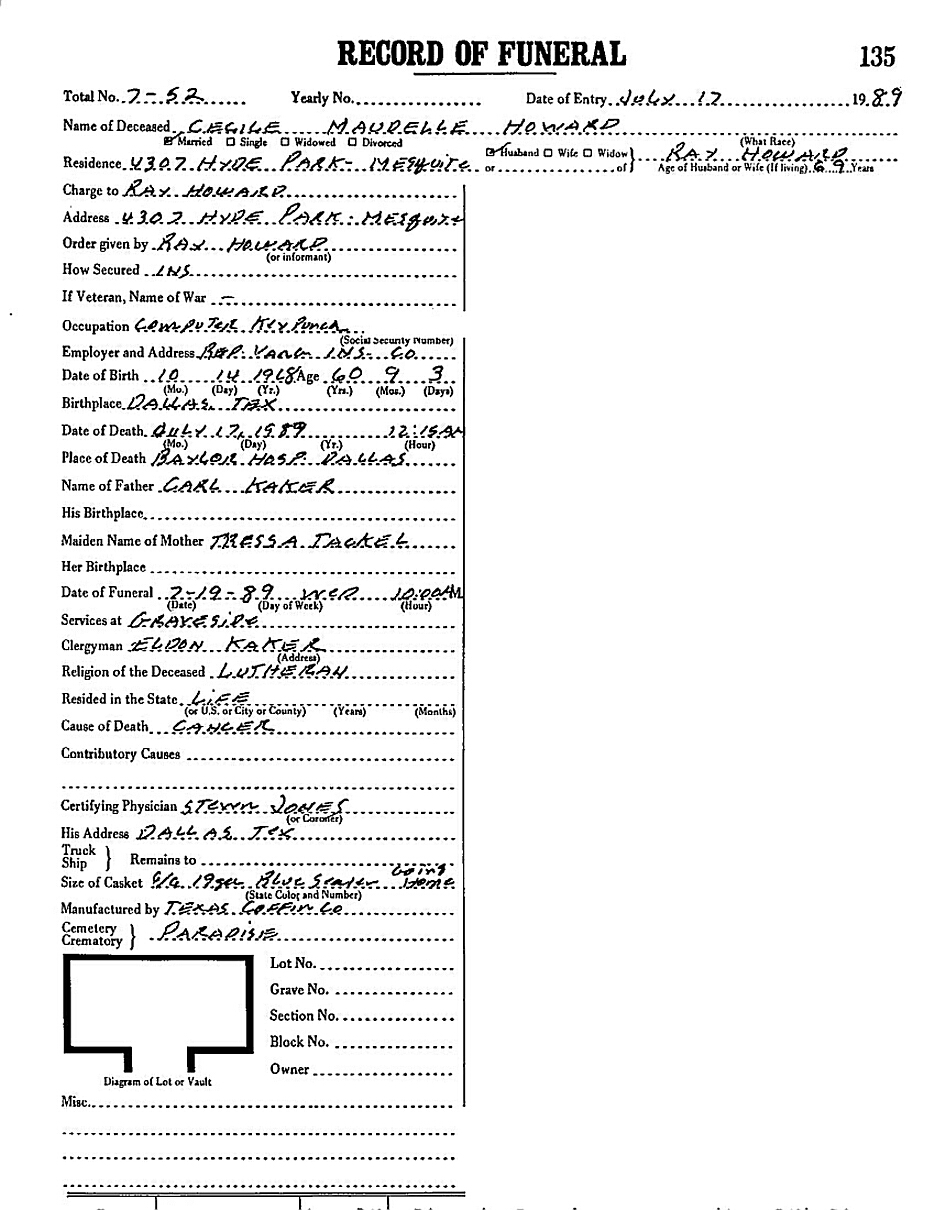 RECORD OF FUNERAL 135
Total No. 7-52 Yearly No. Date of Entry July 17 1989
Name of Deceased CECILE MAUDELLE HOWARD
(What Race)
Married Single Widowed Divorced
Husband Wife Widow
Residence 4307 HYDE PARK - MESQUITE or of RAY HOWARD
Age of Husband or Wife (If living) 69 Years
Charge to RAY HOWARD
Address 4307 HYDE PARK - MESQUITE
Order given by RAY HOWARD
(or informant)
How Secured INS
If Veteran, Name of War —
Occupation COMPUTER KEY PUNCH
(Social Security Number)
Employer and Address INS- CO.
Date of Birth 10 14 1928 Age 60 9 3
(Mo.) (Day) (Yr.) (Yrs.) (Mos.) (Days)
Birthplace DALLAS, TEX
Date of Death July 17, 1989 12:15 AM
(Mo.) (Day) (Yr.) (Hour)
Place of Death BAYLOR HOSP. DALLAS
Name of Father CARL KAKER
His Birthplace
Maiden Name of Mother TRESSA TACKEL
Her Birthplace
Date of Funeral 7-19-89 WED 10:00AM
(Date) (Day of Week) (Hour)
Services at GRAVESIDE
Clergyman ELDON KAKER
(Address)
Religion of the Deceased LUTHERAN
Resided in the State LIFE
(or U.S. or City or County) (Years) (Months)
Cause of Death CANCER
Contributory Causes
Certifying Physician JONES
(or Coroner)
His Address DALLAS TEX
Truck
Ship } Remains to
going
Size of Casket 6/6 19 ga. Blue Sealer Home
(State Color and Number)
Manufactured by TEXAS COFFIN CO
Cemetery
Crematory } PARADISE
Lot No.
Grave No.
Section No.
Block No.
Owner
Diagram of Lot or Vault
Misc.